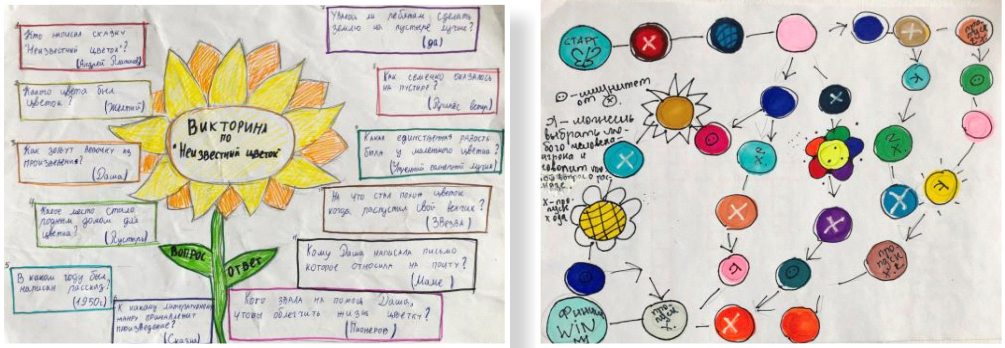 Кто написал сказку
"Неизвестный цветок"?
(Андрей Платонов)
Какого цвета был
цветок? (Жёлтый)
Как зовут девочку из
произведения?
(Даша)
Какое место стало
родным домом для
цветка?
(Пустырь)
В каком году был
написан рассказ?
(1950г)
К какому литературному
жанру принадлежит
произведение?
(Сказка)
Викторина
по
"Неизвестный цветок"
Вопрос
Ответ
ли ребятам сделать
землю на пустыре лучше?
(да)
Как семечко оказалось
на пустыре?
(Принёс ветер)
Какая единственная радость
была у маленького цветка?
На что стал похож цветок
когда распустил свой венчик?
(Звезда)
Кому Даша написала письмо
которое относила на почту?
(Маме)
Кого звала на помощь Даша,
чтобы облегчить жизнь цветку?
(Пионеров)
СТАРТ
X
- иммунитет
от X.
Я - можешь
выбрать лю-
бого человека
игрока и
X - про-
пуск
хода
Финиш
WIN